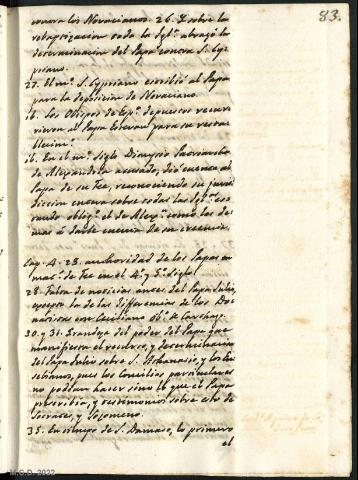 83.
contra los Novacianos. 26. Y sobre la
rebaptizacion toda la Igl.ª abrazó la
determinacion del Papa contra S. Cy-
priano.
27. El m.º S. Cypriano escribió al Papa
para la deposicion de Novaciano.
ib. Los Obispos de Esp.ª depuestos recur-
rieron al Papa Estevan para su resta-
blecim.to
ib. En el m.º siglo Dionysio Patriarcha
de Alexandria acusado, dió cuenta al
Papa de su Fee, reconociendo su juris-
diccion entera sobre todas las Igl.as es-
tando oblig.º el de Alex.ª como los de-
mas á darle cuenta de su creencia.
Cap. 4. 28. authoridad de los Papas en
mat.ª de Fee en el 4.º y 5.º siglo.
28. Falta de noticias antes del Papa Julio,
excepto la de las differencias de los Do-
natistas con Ceciliano Ob.º de Carthago.
30. y 31. Grandeza del poder del Papa que
manifiesta el recurso, y determinacion
del Papa Julio sobre S. Athanasio, y los Eu-
sebianos, pues los Concilios particulares
no podian hacer sino lo que el Papa
prescribia, y testimonios sobre esto de
Socrates, y Sozomeno.
35. En tiempo de S. Damaso, lo primero
el
M.C.D. 2022